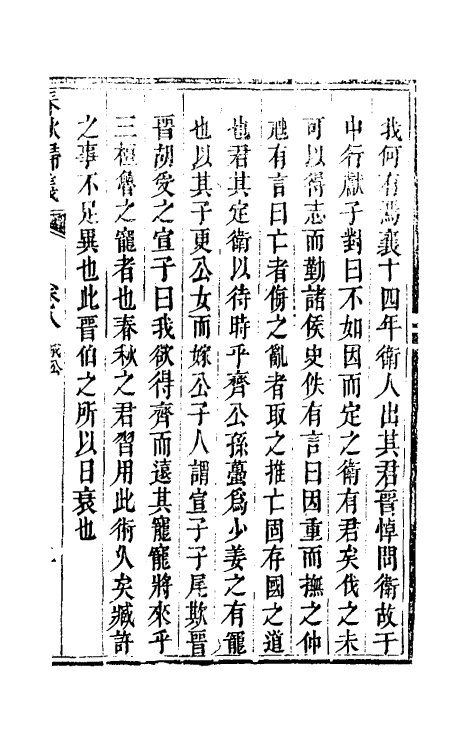 我何有焉襄十四年衛人出其君晉悼問衛故于
中行獻子對曰不如因而定之衛有君矣伐之未
可以得志而勤諸侯史佚有言曰因重而撫之仲
虺有言曰亡者侮之亂者取之推亡固存國之道
也君其定衛以待時乎齊公孫蠆爲少姜之有寵
也以其子更公女而嫁公子人謂宣子子尾欺晉
晉胡受之宣子曰我欲得齊而遠其寵寵將來乎
三桓魯之寵者也春秋之君習用此術久矣臧許
之事不足異也此晉伯之所以日衰也
春秋 卷八 成公